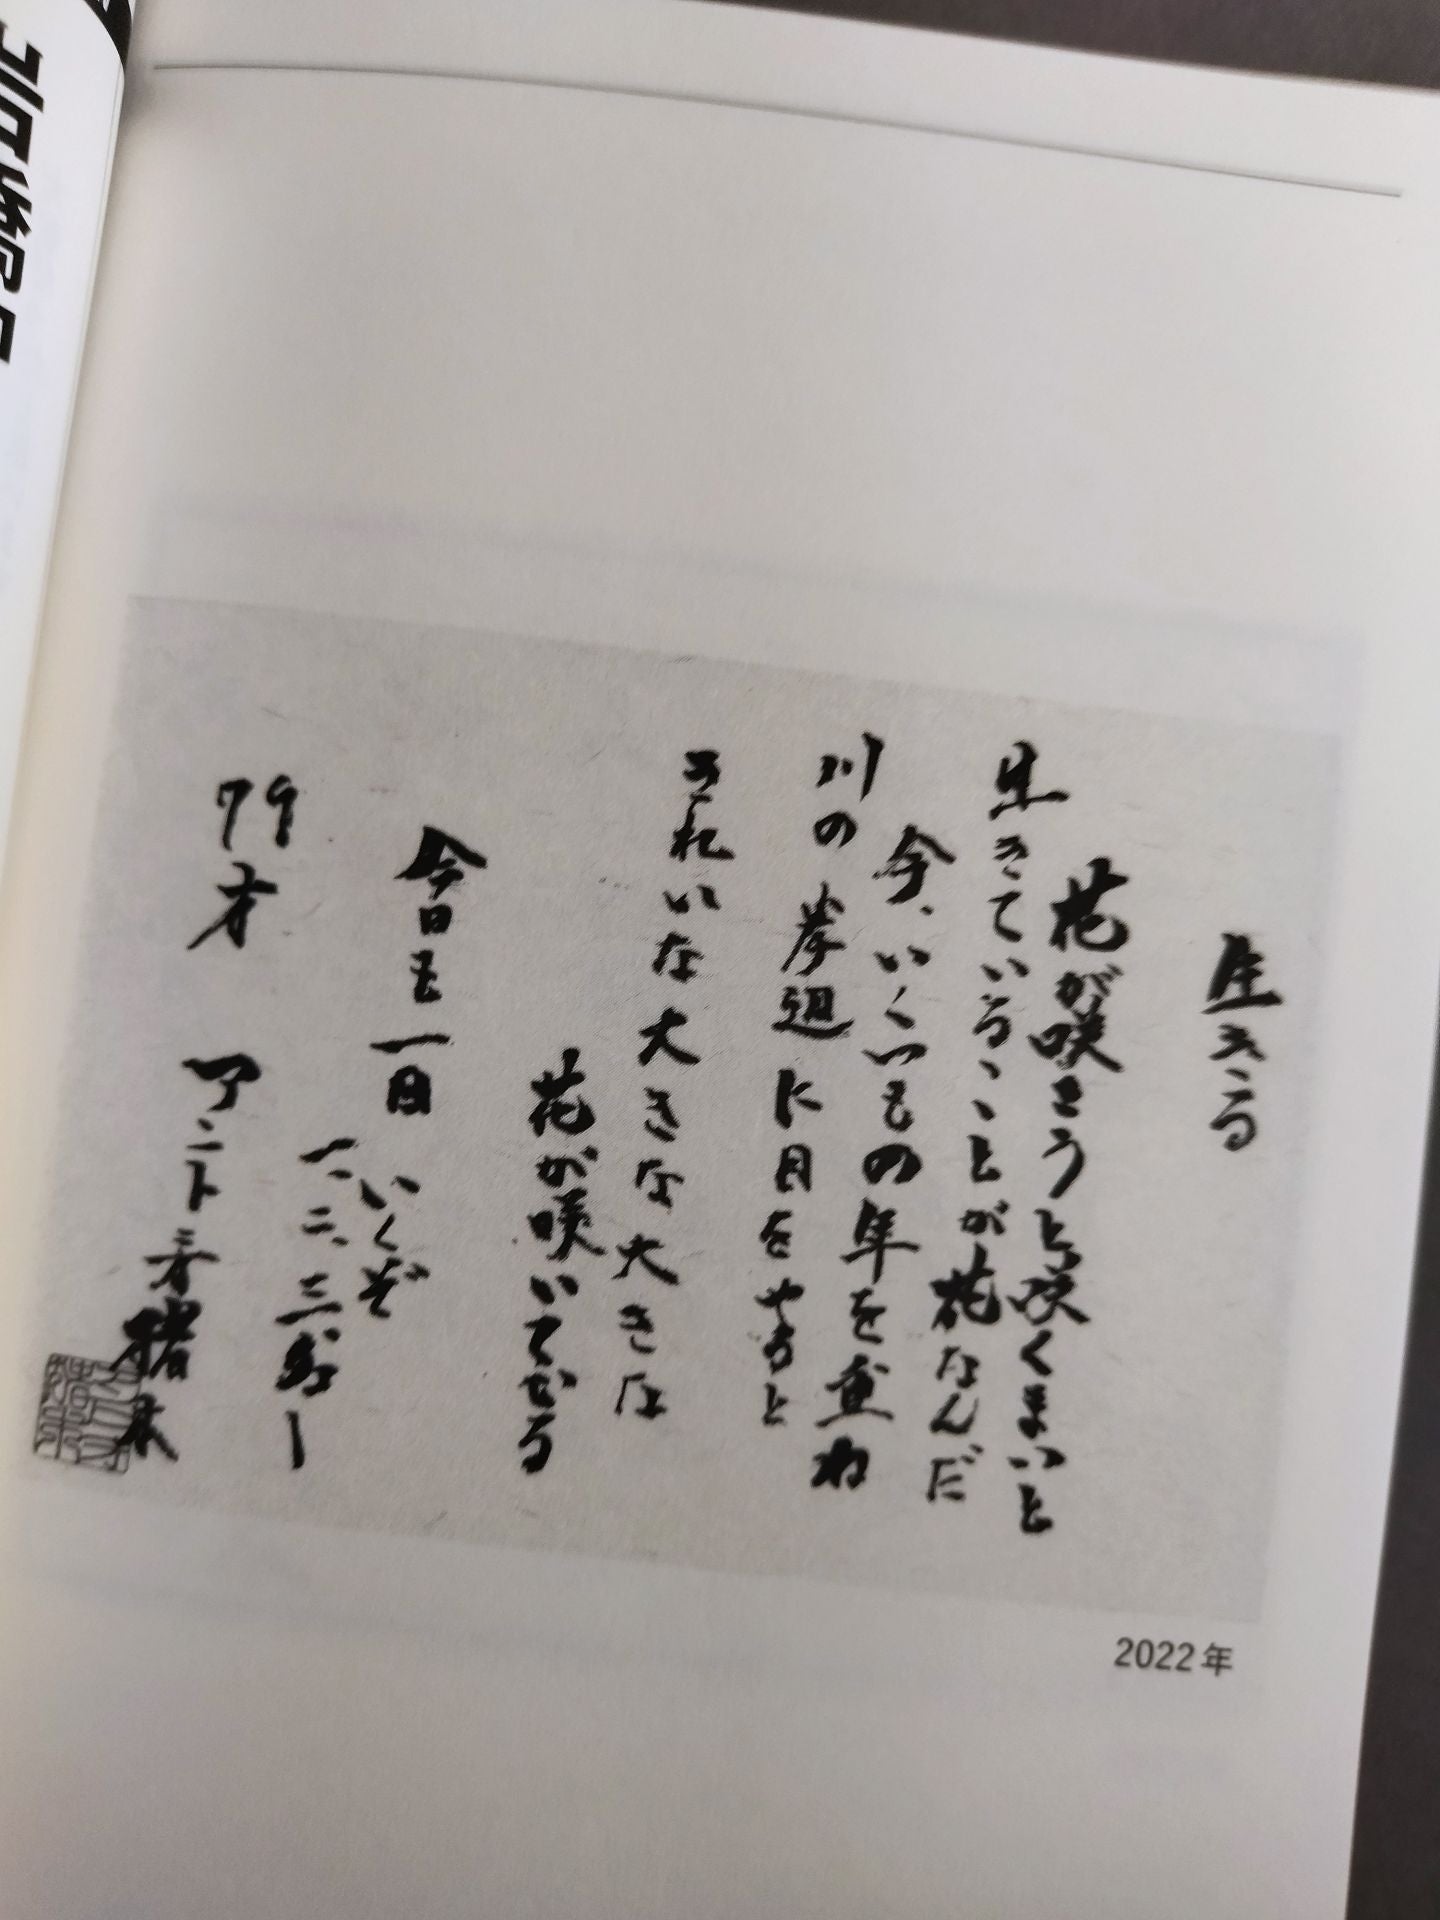 生きる
花が咲こうと咲くまいと
生きていることが花なんだ
今、いくつもの年を重ね
川の岸辺に目をやると
きれいな大きな大きな
花が咲いてゐる
今日も一日 いくぞ
一、二、三、ダー
79才 アントニオ猪木
2022年